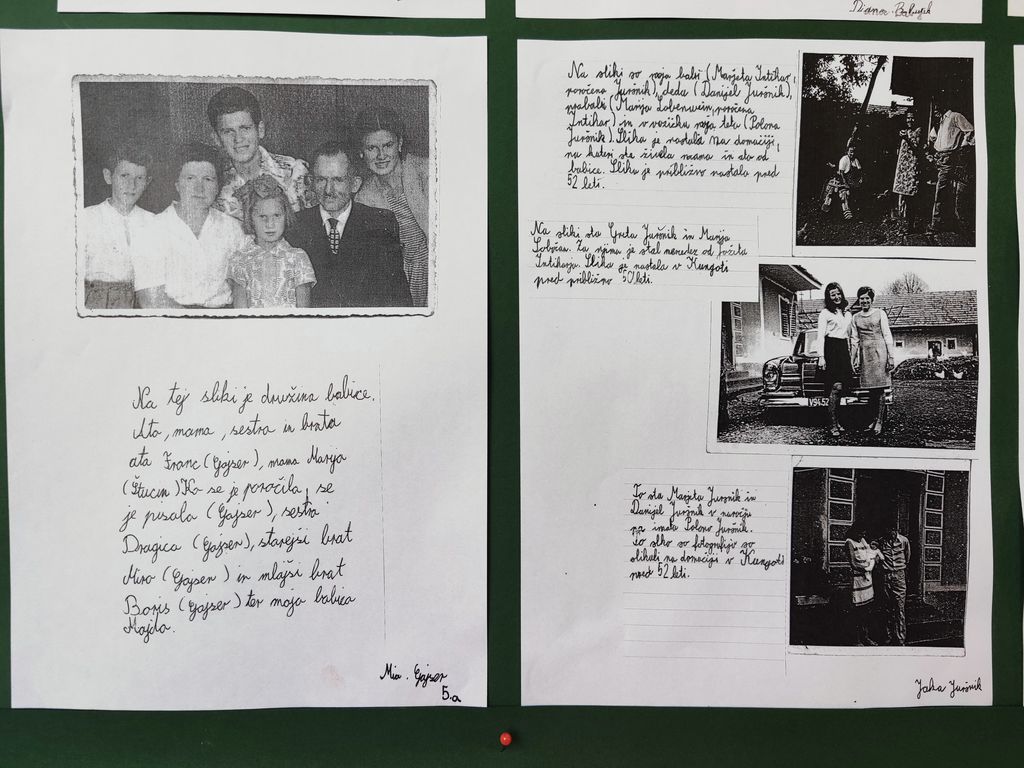 Diana Babušek
Na tej sliki je družina babice.
Ata, mama, sestra in brata
ata Franc (Gajser), mama Marija
(Štucin) Ko se je poročila, se
je pisala (Gajser), sestra
Dragica (Gajser), starejši brat
Miro (Gajser) in mlajši brat
Boris (Gajser) ter moja babica
Majda.
Mia. Gajser
5.a
Na sliki so moja babi (Marjeta Intihar,
poročena Juršnik), deda (Danijel Juršnik),
prababi (Marija Lobenwein, poročena
Intihar) in v vozičku moja teta (Polona
Juršnik). Slika je nastala na domačiji,
na kateri sta živela mama in ata od
babice. Slika je približno nastala pred
52 leti.
Na sliki sta Greta Juršnik in Marija
Sobočan. Za njima je stal mercedez od Jožeta
Intiharja. Slika je nastala v Kungoti
pred približno 50 leti.
V9452
To sta Marjeta Juršnik in
Danijel Juršnik v naročju
pa imata Polono Juršnik.
To sliko so fotografijo so
slikali na domačiji v Kungoti
pred 52 leti.
Jaka Juršnik